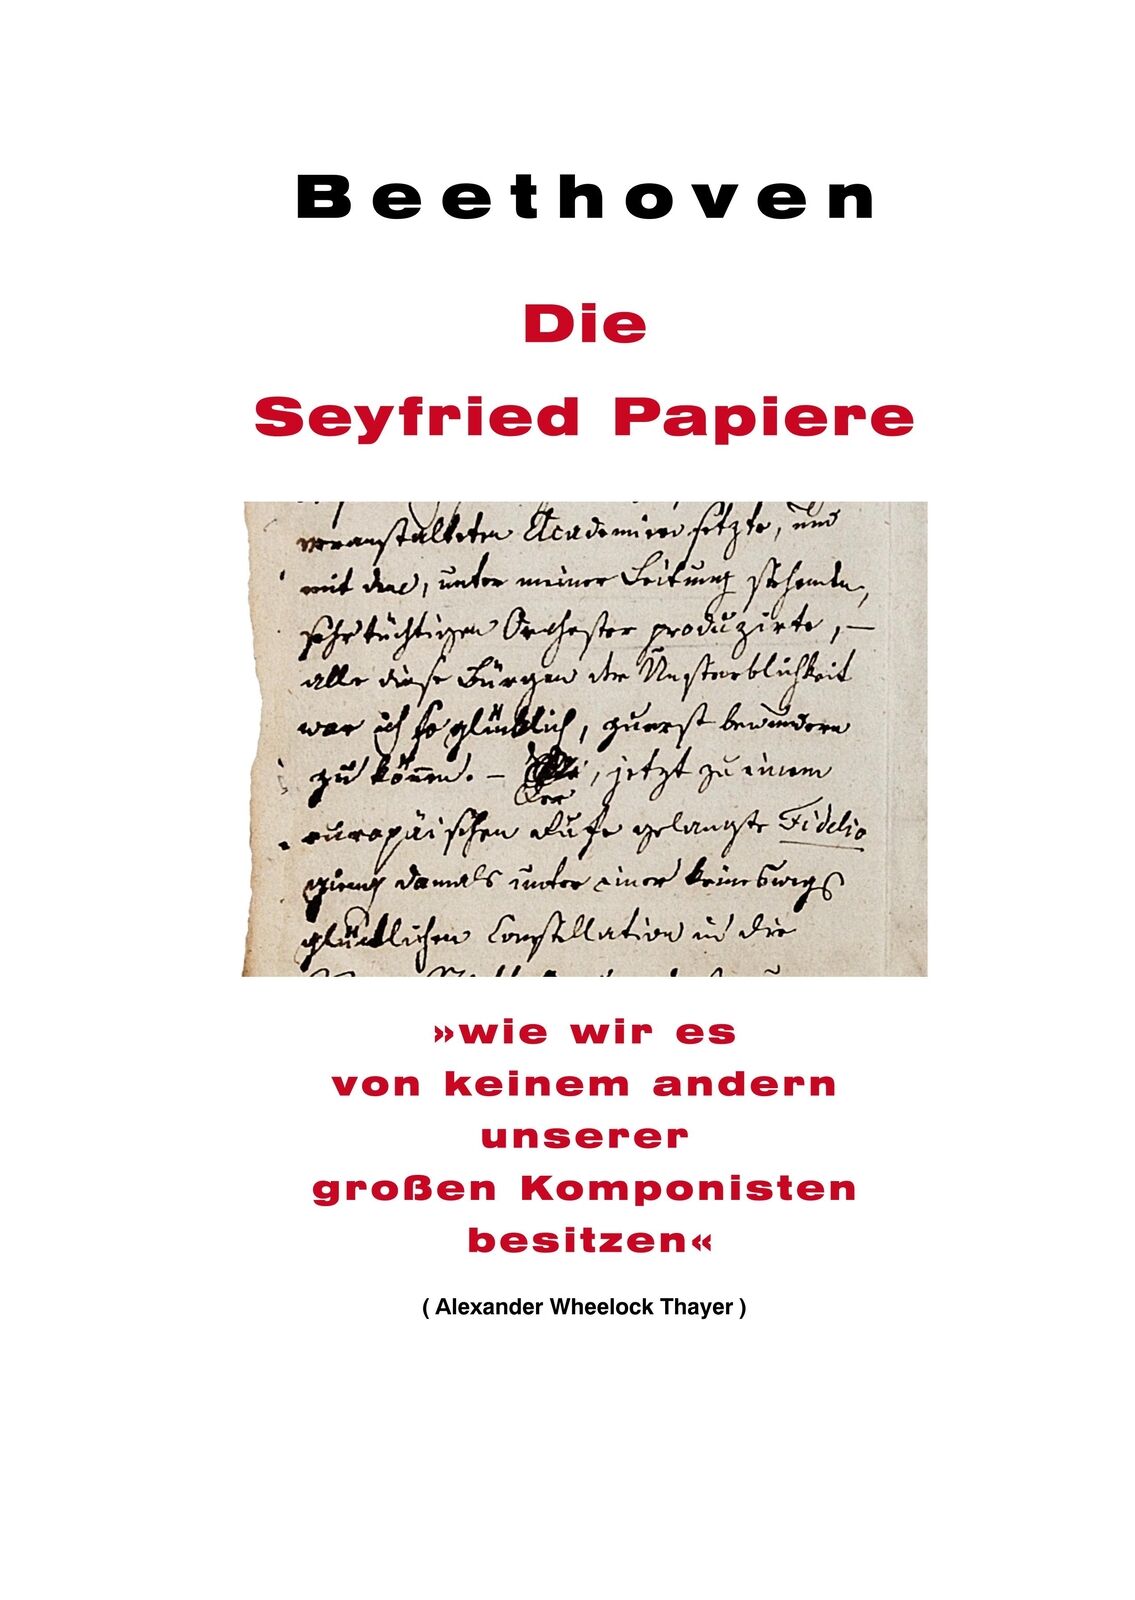 Beethoven
Die
Seyfried Papiere
veranstalteten Academien setzte, und
mit dem, unter meiner Leitung stehenden,
sehr tüchtigen Orchester produzirte, –
alle diese Bürgen der Unsterblichkeit
war ich so glücklich, zuerst bewundern
zu können. – Der, jetzt zu einem
europäischen Rufe gelangte Fidelio
gieng damals unter einer keineswegs
glücklichen Constellation in die
»wie wir es
von keinem andern
unserer
großen Komponisten
besitzen«
( Alexander Wheelock Thayer )